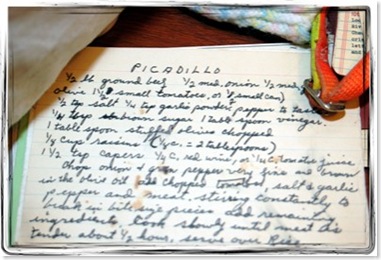 PICADILLO
½ lb ground beef ½ med. onion ½ med.
olive 1½ small tomatoes, or (small can)
½ tsp salt ¼ tsp garlic powder pepper to taste
brown sugar 1 table spoon vinegar.
1 table spoon stuffed olives chopped
⅛ cups raisins (⅛ c. = 2 tablespoons)
1½ tsp capers ¼ c. red wine, or ¼ c. tomatoe juice
Chop onion & green pepper very fine and brown
in the olive oil add chopped tomatoes, salt & garlic
pepper and meat. stirring constantly to
break in bite size pieces add remaining
ingredients. Cook slowly until meat is
tender about ½ hour, serve over Rice